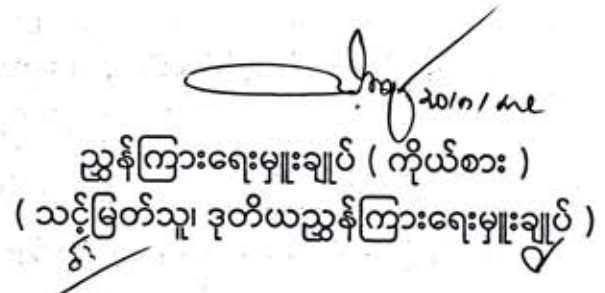 ညွှန်ကြားရေးမှူးချုပ် ( ကိုယ်စား )
( သင့်မြတ်သူ၊ ဒုတိယညွှန်ကြားရေးမှူးချုပ် )